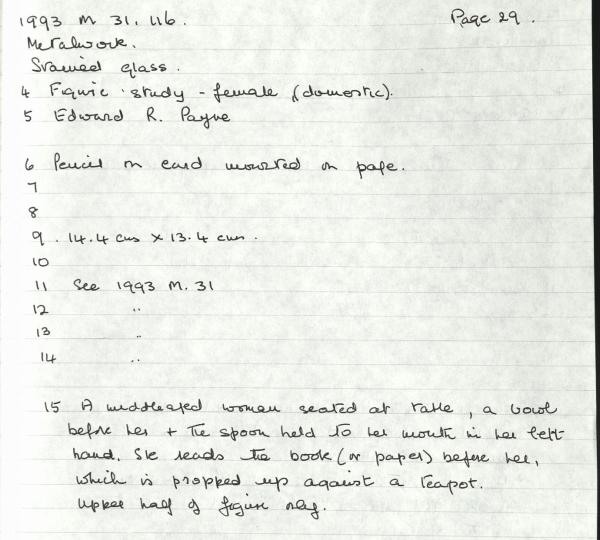 1993 M. 31. 46. Page 29.
Metalwork.
Stained glass.
4 Figure study - female (domestic).
5 Edward R. Payne
6 Pencil on card mounted on page.
7
8
9. 14.4 cms x 13.4 cms.
10
11 See 1993 M. 31
12 "
13 "
14 "
15 A middleaged woman seated at table, a bowl
before her + the spoon held to her mouth in her left
hand. She reads the book (or paper) before her,
which is propped up against a teapot.
Upper half of figure only.